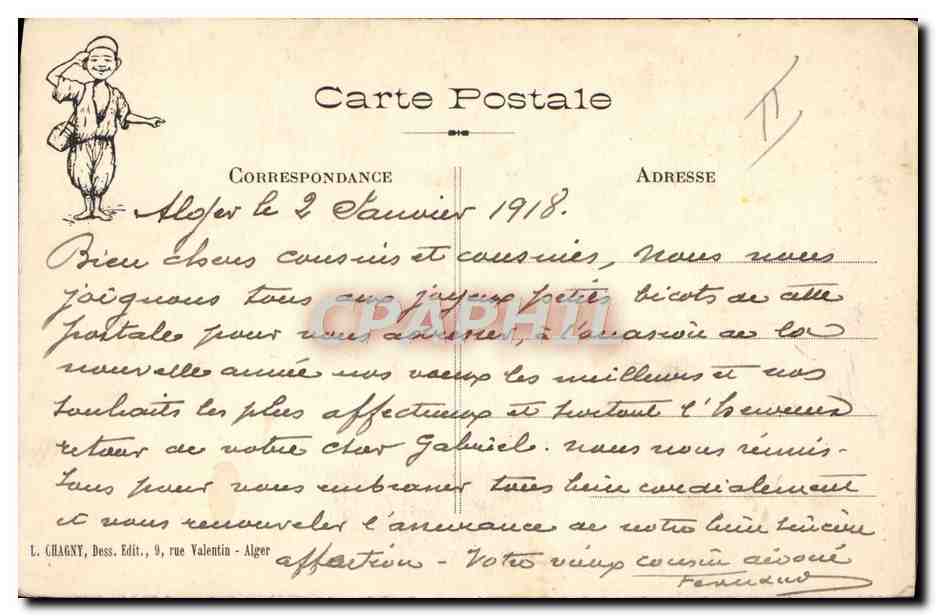 Carte Postale
II
CORRESPONDANCE
ADRESSE
Alger le 2 Janvier 1918.
Bien chers cousins et cousines, nous nous
joignons tous aux joyeux petits bicots de cette
postale pour vous adresser, à l'occasion de la
nouvelle année nos voeux les meilleurs et nos
souhaits les plus affectueux et surtout l'heureux
retour de votre cher Gabriel. nous nous réunis-
sons pour vous embrasser tous bien cordialement
et vous renouveler l'assurance de notre bien sincère
affection - Votre vieux cousin dévoué
Fernand
L. CHAGNY, Dess. Edit., 9, rue Valentin - Alger
CPAPHIL